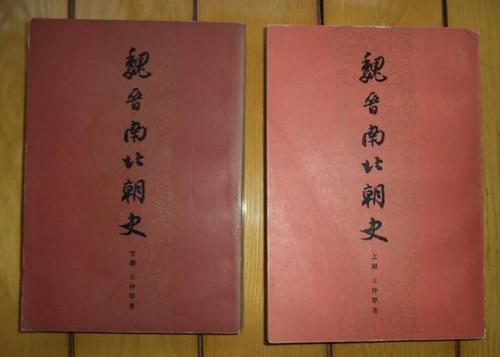 魏晋南北朝史
下册 王仲荦著
魏晋南北朝史
上册 王仲荦著